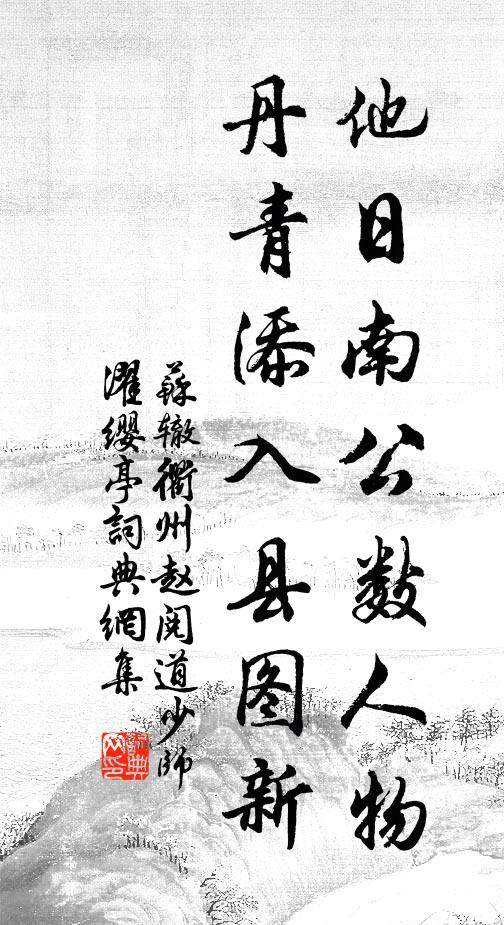 他日南公数人物
丹青添入县图新
蘇辙衢州赵阅道少师
濯缨亭詞典網集